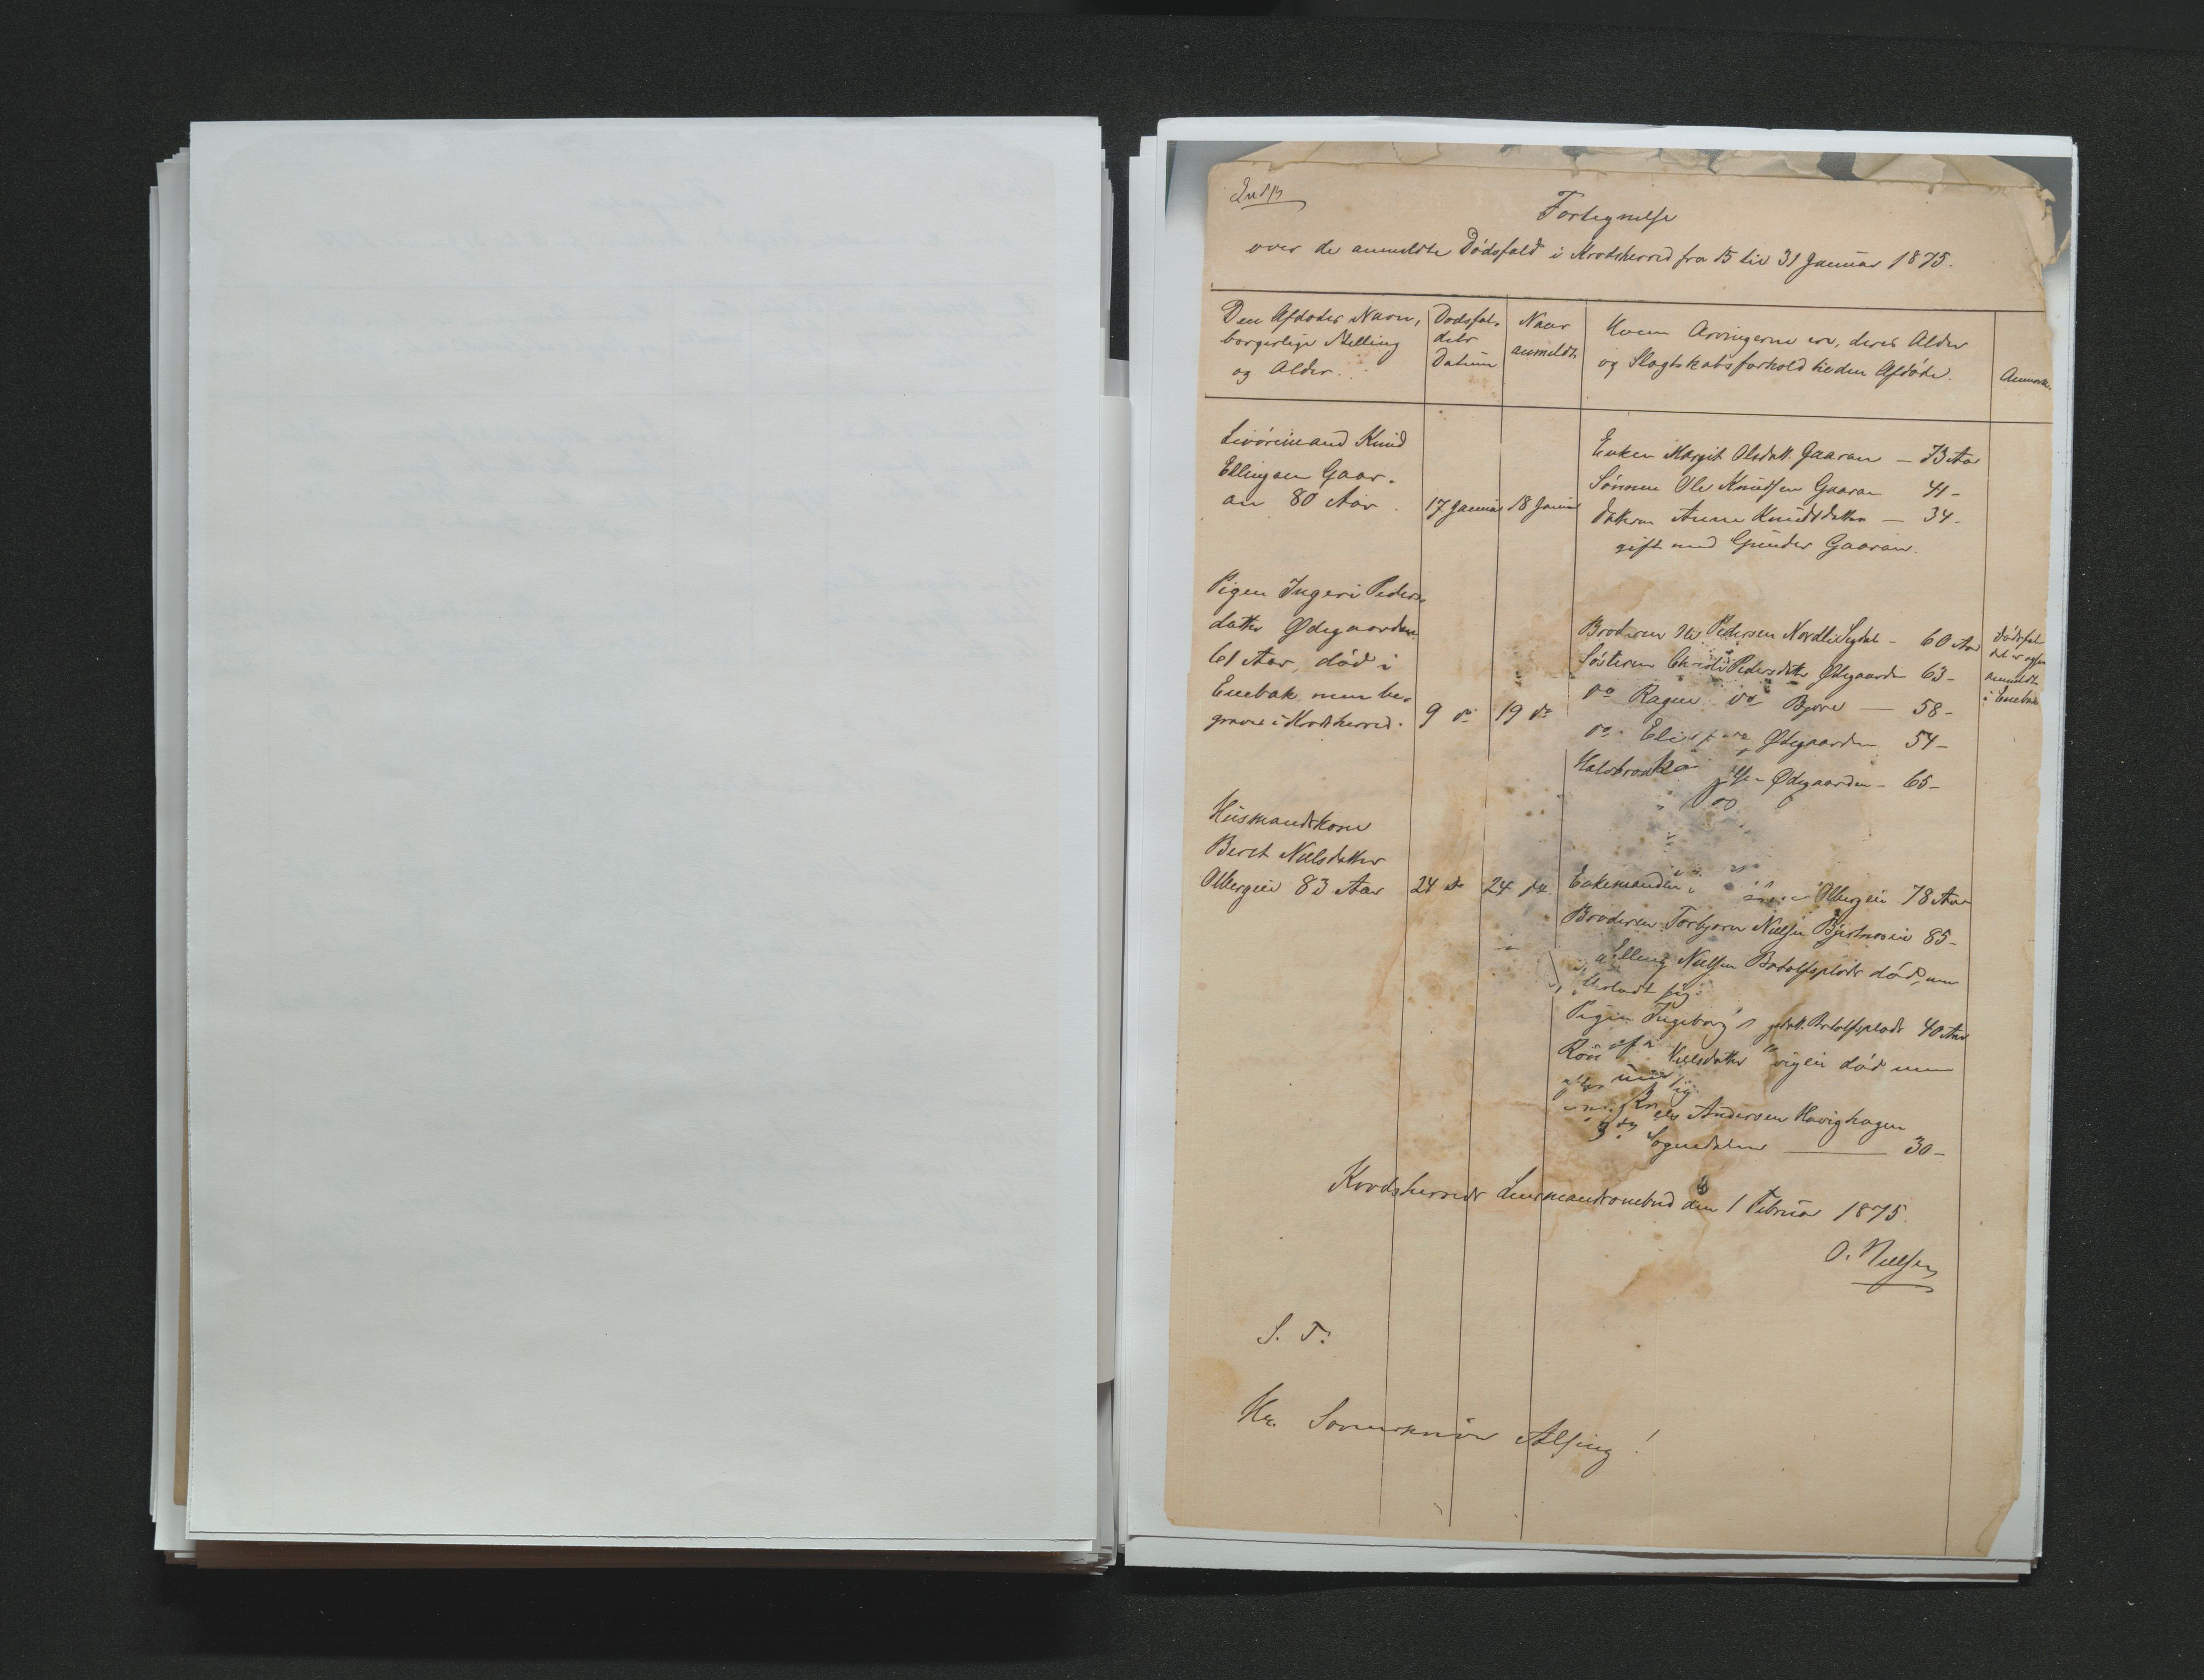 Fortegnelse
over de anmeldte Dødsfald i Krødsherred fra 15 til 31 Januar 1875.
Den Afdødes Navn,
borgerlige Stilling
og Alder.
Dødsfal-
dets
Datum
Naar
anmeldt
Hvem Arvingerne ere, deres Alder
og Slægtskabsforhold til den Afdøde.
Anmærk.
Livøremand Knud
Ellingsen Gaar-
an 80 Aar
17 Januar
18 Januar
Enken Margit Olsdatt. Gaaran — 73 Aar
Sønnen Ole Knudsen Gaaran 41 -
Datteren Anne Knudsdatter — 34 -
gift med Gunder Gaaran.
Pigen Ingeri Peders-
datter Ødegaarden
61 Aar, død i
Enebak men be-
graven i Krødsherred.
9 do
19 do
Broderen Pedersen Nordli Sigdal - 60 Aar
Søsteren Christi Pedersdatter Ødegaarden 63 -
do Ragne do Bjøre — 58 -
do Eli Ødegaarden 54 -
Halvbror Ødegaarden - 65 -
Dødsfal-
det er ogsaa
anmeldt
i Enebak
Husmandskone
Beret Nielsdatter
Olbergeie 83 Aar
24 do
24 do
Enkemanden Olbergeie 78 Aar
Broderen Torbjørn Nielsen 85 -
Elling Nielsen Botolfsplads død, men
efterladt sig:
Pigen Ingeborg Botolfsplads 40 Aar
Nielsdatter død men
sig
Andersen Havighagen
Sognedalen — 30 -
Krødsherreds Lensmandsombud den 1 Februar 1875.
O. Nielsen
S. T.
Hr. Sorenskriver Alsing!